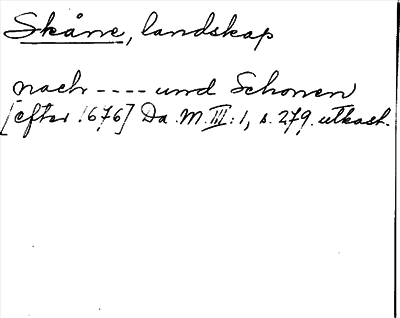 Skåne, landskap
nach ---- und Schonen
[efter 1676] Da. M. III: 1, s. 279. utkast.